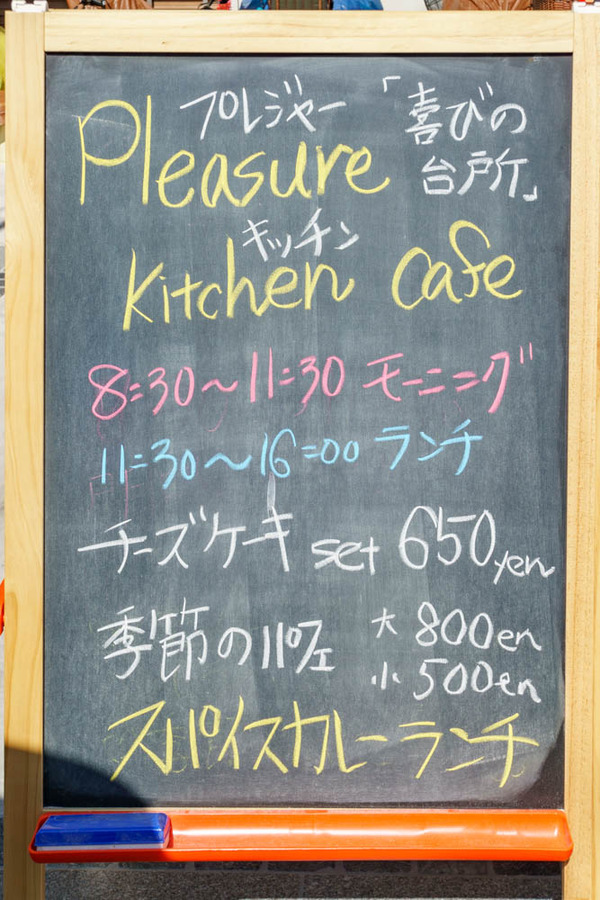 プレジャー 「喜びの
Pleasure 台所」
キッチン
Kitchen cafe
8:30〜11:30 モーニング
11:30〜16:00 ランチ
チーズケーキ set 650yen
季節のパフェ 大 800en
小 500en
スパイスカレーランチ